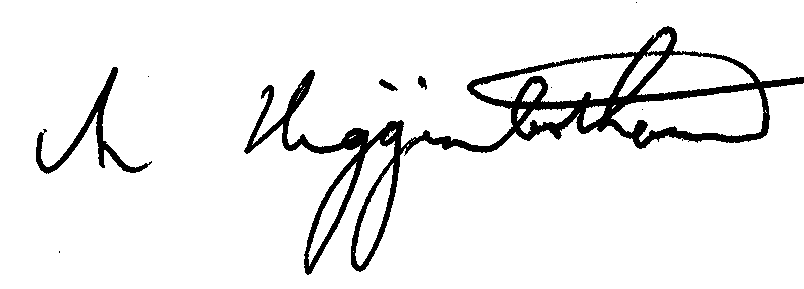 A Higginbotham